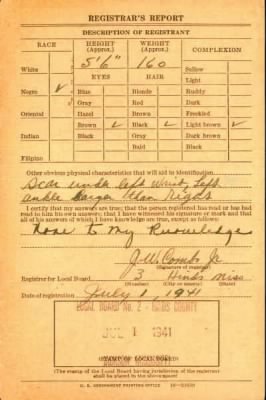 REGISTRAR'S REPORT
DESCRIPTION OF REGISTRANT
RACE HEIGHT (Approx.) WEIGHT (Approx.) COMPLEXION
5'6" 160
White Sallow
EYES HAIR Light
Negro ✓ Blue Blonde Ruddy
Gray Red Dark
Oriental Hazel Brown Freckled
Brown ✓ Black ✓ Light brown ✓
Indian Black Gray Dark brown
Bald Black
Filipino
Other obvious physical characteristics that will aid in identification
Scar under left Wrist, left
ankle larger than right
I certify that my answers are true; that the person registered has read or has had
read to him his own answers; that I have witnessed his signature or mark and that
all of his answers of which I have knowledge are true, except as follows:
None to my Knowledge
J. W. Combs Jr
(Signature of registrar)
Registrar for Local Board 3 Hinds Miss
(Number) (City or county) (State)
Date of registration July 1, 1941
LOCAL BOARD No. 2 - HINDS COUNTY
JUL 1 1941
(STAMP OF LOCAL BOARD)
(The stamp of the Local Board having jurisdiction of the registrant
shall be placed in the above space)
U. S. GOVERNMENT PRINTING OFFICE